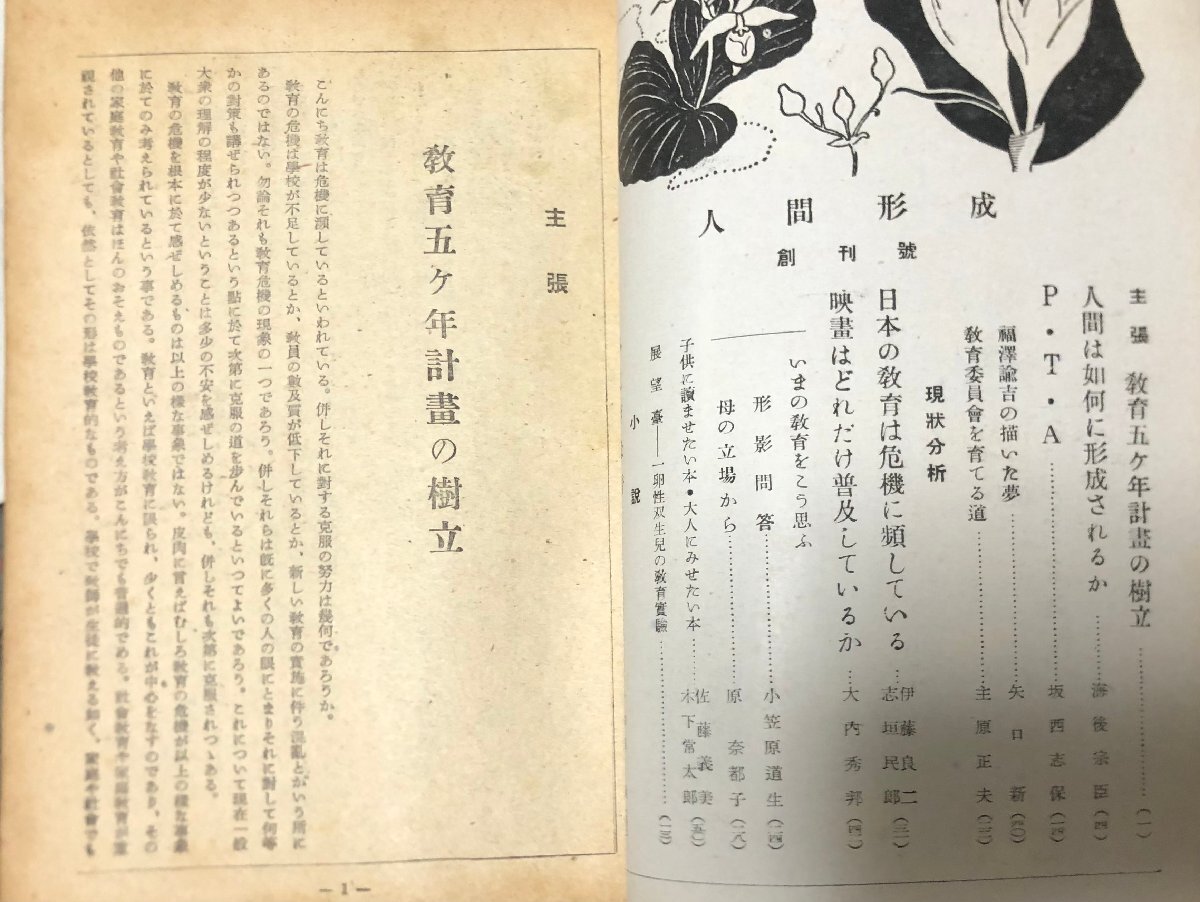 人間形成
創刊號
主張 教育五ケ年計畫の樹立……(一)
人間は如何に形成されるか……海後宗臣(四)
P・T・A……坂西志保(一四)
福澤諭吉の描いた夢……矢口新(四〇)
教育委員會を育てる道……主原正夫(二二)
現狀分析
日本の敎育は危機に頻している……伊藤良二
志垣民郎(三一)
映畫はどれだけ普及しているか……大內秀邦(四一)
いまの敎育をこう思ふ
形影問答……小笠原道生(二四)
母の立場から……原奈都子(二八)
子供に讀ませたい本・大人にみせたい本……佐藤義美
木下常太郎(五〇)
展望臺——一卵性双生兒の敎育實驗……(一三)
小說
主張
敎育五ケ年計畫の樹立
こんにち敎育は危機に瀕しているといわれている。併しそれに對する克服の努力は幾何であろうか。
敎育の危機は學校が不足しているとか、敎員の數及質が低下しているとか、新しい敎育の實施に伴う混亂とかいう所に
あるのではない。勿論それも敎育危機の現象の一つであろう。併しそれらは旣に多くの人の眼にとまりそれに對して何等
かの對策も講ぜられつつあるという點に於て次第に克服の道を步んでいるといつてよいであろう。これについて現在一般
大衆の理解の程度が少ないということは多少の不安を感ぜしめるけれども、併しそれも次第に克服されつゝある。
敎育の危機を根本に於て感ぜしめるものは以上の樣な事象ではない。皮肉に言えばむしろ敎育の危機が以上の樣な事象
に於てのみ考えられているという事である。敎育といえば學校敎育に限られ、少くともこれが中心をなすのであり、その
他の家庭敎育や社會敎育はほんのおそえものであるという考え方がこんにちでも普遍的である。社會敎育や家庭敎育が重
視されているとしても、依然としてその形は學校敎育的なものである。學校で敎師が生徒に敎える如く、家庭や社會でも
— 1 —